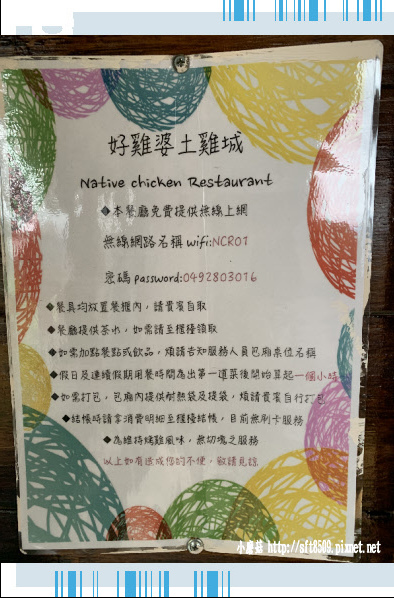 好雞婆土雞城
Native chicken Restaurant
◆本餐廳免費提供無線上網
無線網路名稱 wifi:NCR01
密碼 password:0492803016
◆餐具均放置餐櫃內，請貴賓自取
◆餐廳提供茶水，如需請至櫃檯領取
◆如需加點餐點或飲品，煩請告知服務人員包廂桌位名稱
◆假日及連續假期用餐時間為出第一道菜後開始算起一個小時
◆如需打包，包廂內提供耐熱袋及提袋，煩請貴賓自行打包
◆結帳時請拿消費明細至櫃檯結帳，目前無刷卡服務
◆為維持烤雞風味，無切塊之服務
以上如有造成您的不便，敬請見諒
小蘑菇 http://sft8509.pixnet.net